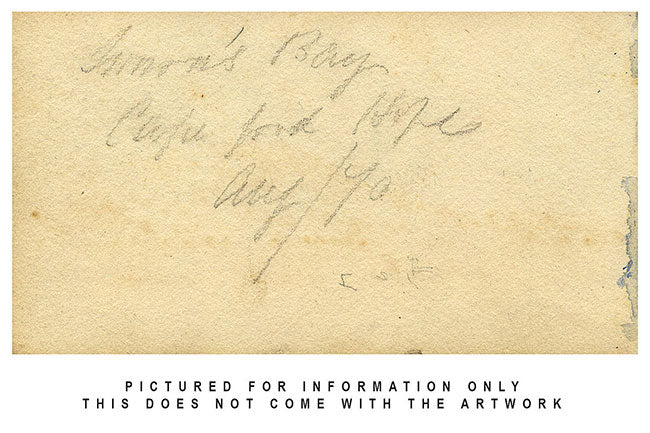 Simon's Bay
Cape good Hope
Aug/70
PICTURED FOR INFORMATION ONLY
THIS DOES NOT COME WITH THE ARTWORK